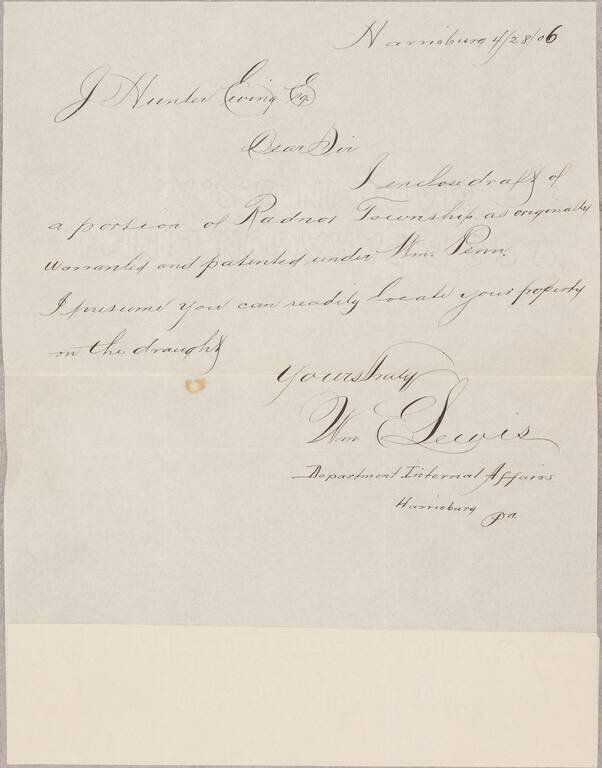 Harrisburg 4/28/06
J Hunter Ewing Esq.
Dear Sir
I enclose draft of
a portion of Radnor Township as originally
warranted and patented under Wm. Penn.
I presume you can readily locate your property
on the draught
Yours Truly
Wm E Lewis
Department Internal Affairs
Harrisburg Pa.